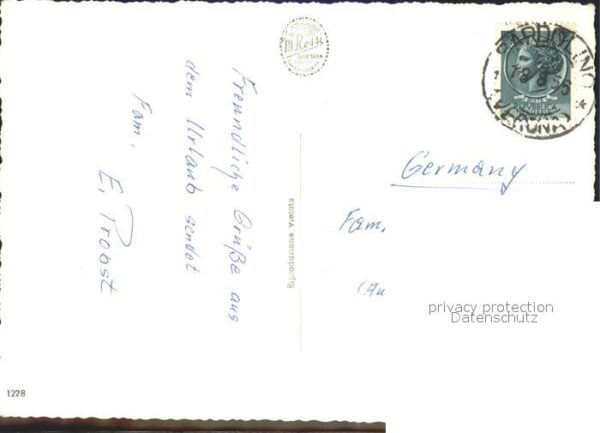 Freundliche Grüße aus
dem Urlaub sendet
Fam.
E. Probst
M. Rossi
BARDOLINO
(VERONA)
Germany
Fam.
Riproduzione vietata
privacy protection
Datenschutz
1228